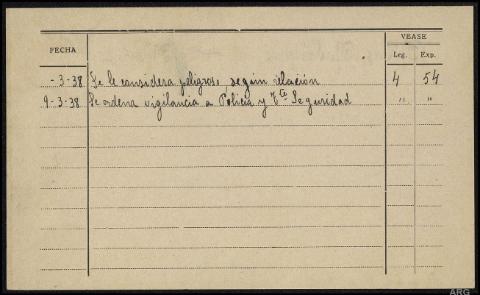 VEASE
FECHA Leg. Exp.
- -3-38 Se le considera peligroso, según relación 4 54
9-3-38 Se ordena vigilancia a Policía y Tte Seguridad " "
ARG